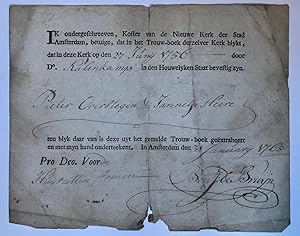 IK ondergeschreeven, Koster van de Nieuwe Kerk der Stad
Amsterdam, betuige, dat in het Trouw-boek derzelver Kerk blykt,
dat in deze Kerk op den 27 Juny 1756 door
Do. Kulenkamp in den Houwelyken Staat bevestig zyn.
Pieter Overstegen & Jannetje Heere
ten blyk daar van is deze uyt het gemelde Trouw-boek geëxtraheert
en met myn hand onderteekent. In Amsterdam den January 1763
Pro Deo. Voor de
Huyszitten